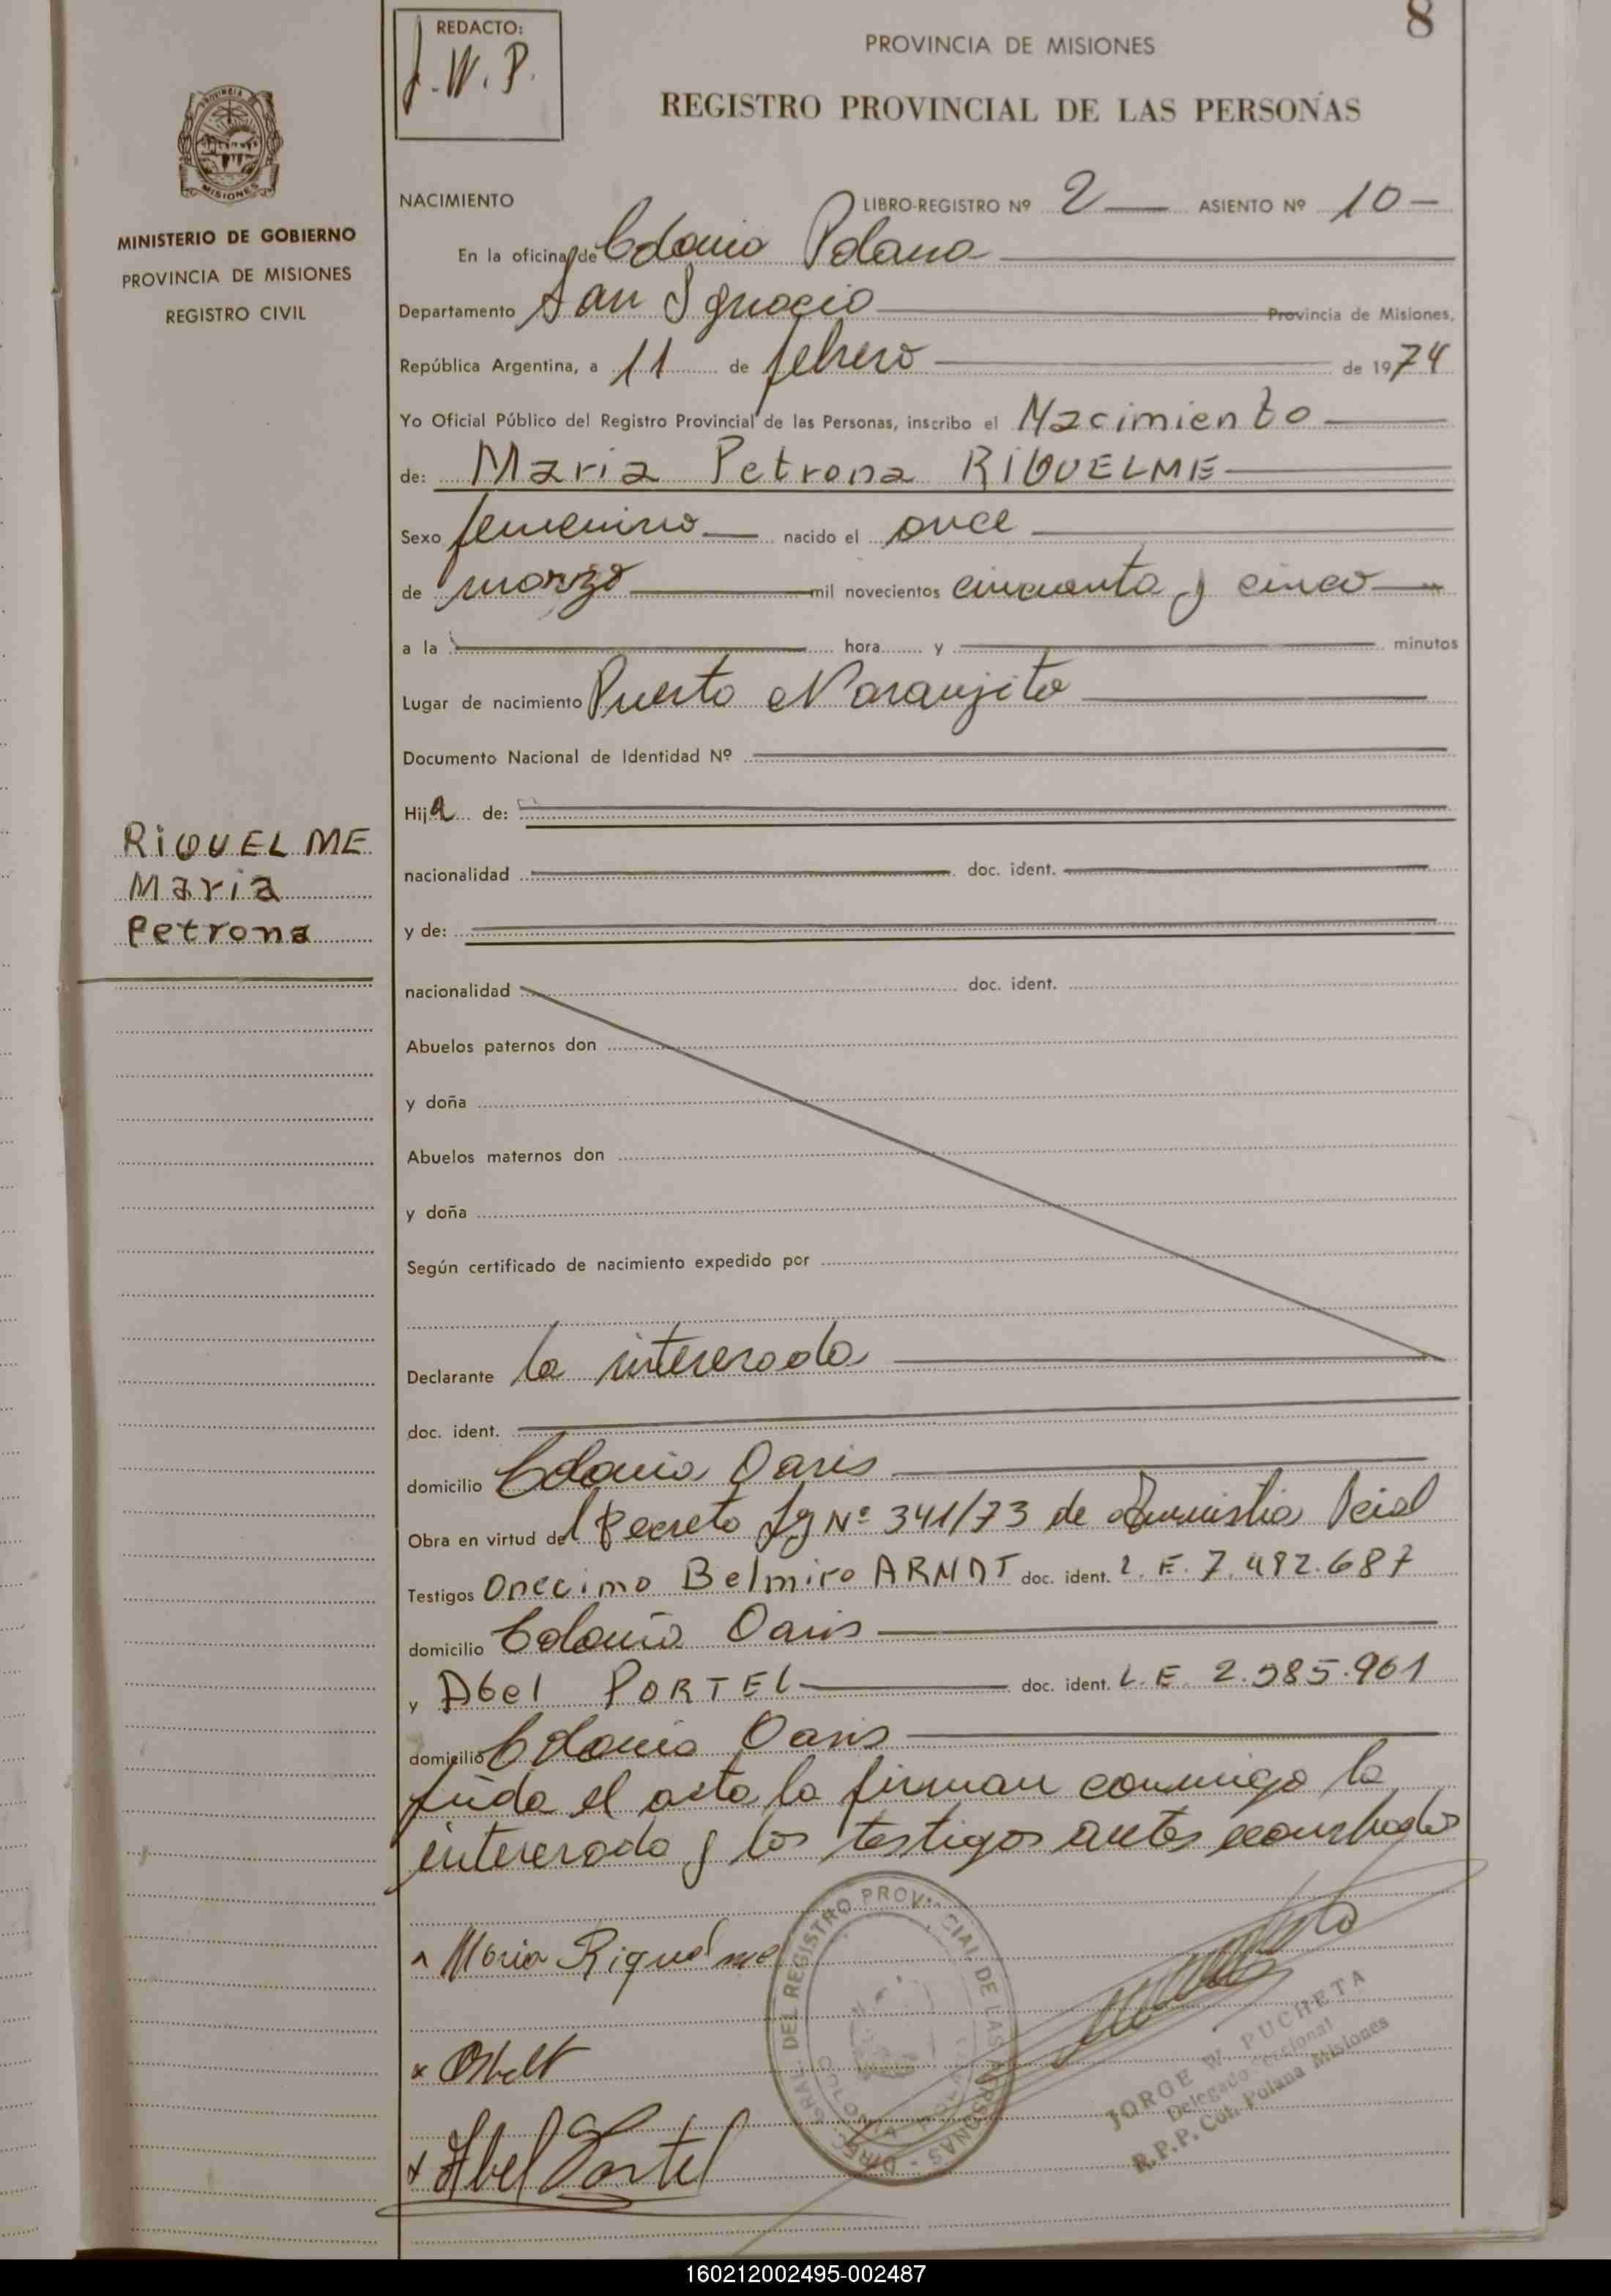 8
REDACTO:
J.W.P.
PROVINCIA DE MISIONES
REGISTRO PROVINCIAL DE LAS PERSONAS
PROVINCIA DE
MISIONES
MINISTERIO DE GOBIERNO
PROVINCIA DE MISIONES
REGISTRO CIVIL
NACIMIENTO LIBRO-REGISTRO Nº 2 ASIENTO Nº 10
En la oficina de Colonia Polana
Departamento San Ignacio Provincia de Misiones,
República Argentina, a 11 de febrero de 1974
Yo Oficial Público del Registro Provincial de las Personas, inscribo el Nacimiento
de: Maria Petrona RIQUELME
Sexo femenino nacido el once
de marzo mil novecientos cincuenta y cinco
a la hora y minutos
Lugar de nacimiento Puerto Naranjito
Documento Nacional de Identidad Nº
Hija de:
RIQUELME
Maria
Petrona
nacionalidad doc. ident.
y de:
nacionalidad doc. ident.
Abuelos paternos don
y doña
Abuelos maternos don
y doña
Según certificado de nacimiento expedido por
Declarante la interesada
doc. ident.
domicilio Colonia Oasis
Obra en virtud del Decreto Ley Nº 341/73 de Amnistia
Testigos Onecimo Belmiro ARNDT doc. ident. L.E. 7.482.687
domicilio Colonia Oasis
y Abel PORTEL doc. ident. L.E. 2.585.961
domicilio Colonia Oasis
el acta la firman conmigo la
interesada y los testigos antes
Maria Riquelme
x
x Abel Portel
DIREC. GRAL. DEL REGISTRO PROVINCIAL DE LAS PERSONAS
COLONIA POLANA
JORGE W. PUCHETA
Delegado Seccional
R.P.P. Col. Polana Misiones
160212002495-002487